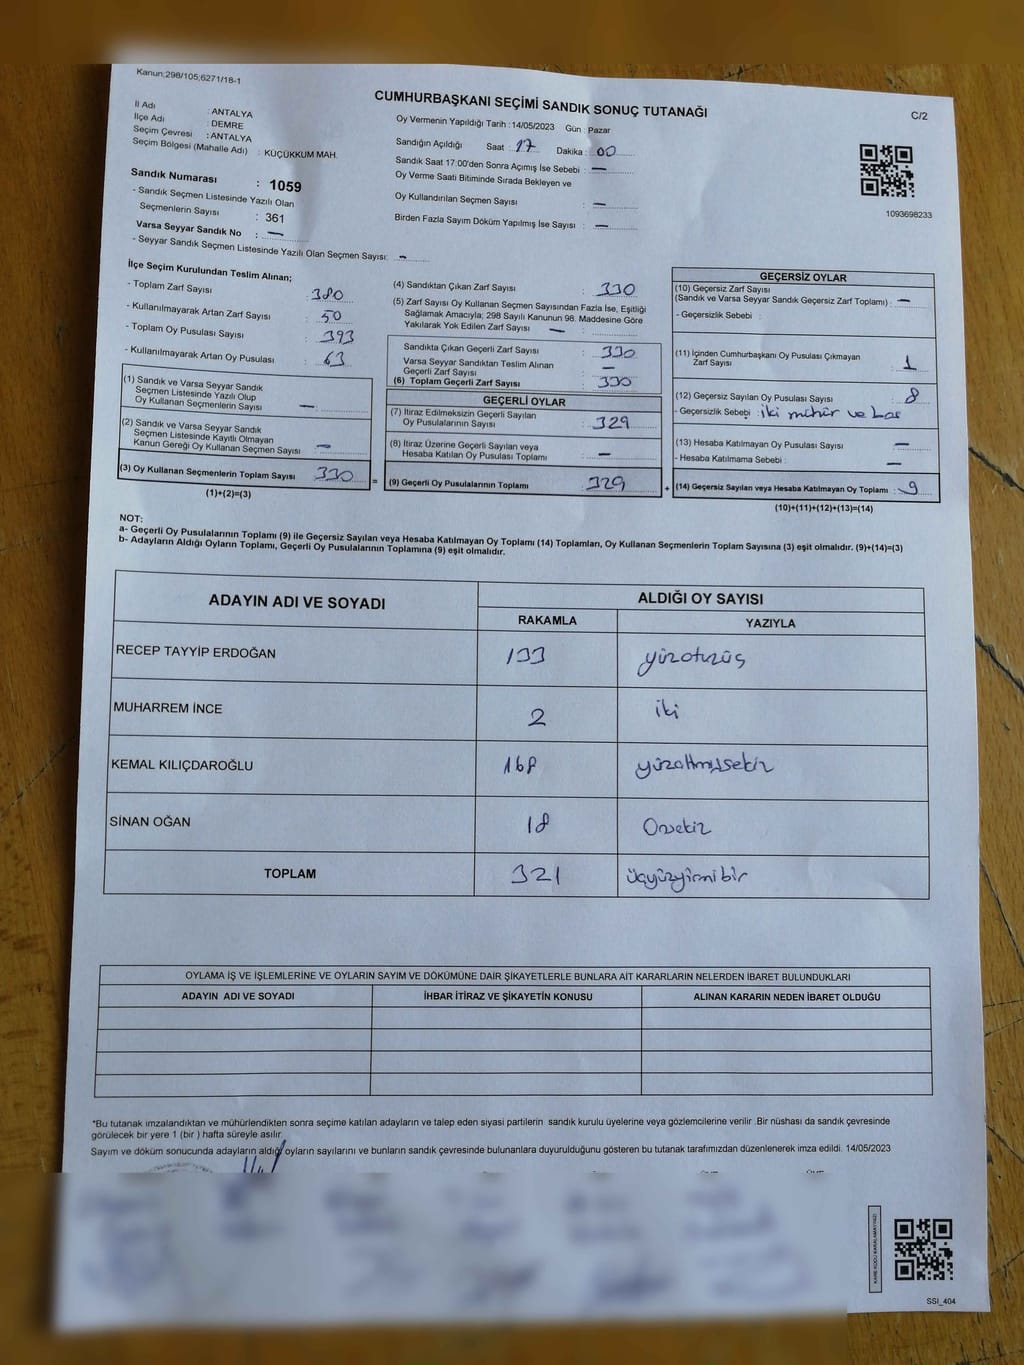 Kanun;298/105;6271/18-1
CUMHURBAŞKANI SEÇİMİ SANDIK SONUÇ TUTANAĞI
C/2
İl Adı : ANTALYA
İlçe Adı : DEMRE
Seçim Çevresi : ANTALYA
Seçim Bölgesi (Mahalle Adı) : KÜÇÜKKUM MAH.
Sandık Numarası : 1059
- Sandık Seçmen Listesinde Yazılı Olan
Seçmenlerin Sayısı : 361
Varsa Seyyar Sandık No : —
- Seyyar Sandık Seçmen Listesinde Yazılı Olan Seçmen Sayısı: —
Oy Vermenin Yapıldığı Tarih : 14/05/2023 Gün : Pazar
Sandığın Açıldığı Saat : 17 Dakika : 00
Sandık Saat 17:00'den Sonra Açımış İse Sebebi : —
Oy Verme Saati Bitiminde Sırada Bekleyen ve
Oy Kullandırılan Seçmen Sayısı : —
Birden Fazla Sayım Döküm Yapılmış İse Sayısı : —
1093698233
İlçe Seçim Kurulundan Teslim Alınan;
- Toplam Zarf Sayısı : 380
- Kullanılmayarak Artan Zarf Sayısı : 50
- Toplam Oy Pusulası Sayısı : 393
- Kullanılmayarak Artan Oy Pusulası : 63
(1) Sandık ve Varsa Seyyar Sandık
Seçmen Listesinde Yazılı Olup
Oy Kullanan Seçmenlerin Sayısı : —
(2) Sandık ve Varsa Seyyar Sandık
Seçmen Listesinde Kayıtlı Olmayan
Kanun Gereği Oy Kullanan Seçmen Sayısı : —
(3) Oy Kullanan Seçmenlerin Toplam Sayısı : 330
(1)+(2)=(3)
(4) Sandıktan Çıkan Zarf Sayısı : 330
(5) Zarf Sayısı Oy Kullanan Seçmen Sayısından Fazla İse, Eşitliği
Sağlamak Amacıyla; 298 Sayılı Kanunun 98. Maddesine Göre
Yakılarak Yok Edilen Zarf Sayısı : —
Sandıkta Çıkan Geçerli Zarf Sayısı : 330
Varsa Seyyar Sandıktan Teslim Alınan
Geçerli Zarf Sayısı : —
(6) Toplam Geçerli Zarf Sayısı : 330
GEÇERLİ OYLAR
(7) İtiraz Edilmeksizin Geçerli Sayılan
Oy Pusulalarının Sayısı : 329
(8) İtiraz Üzerine Geçerli Sayılan veya
Hesaba Katılan Oy Pusulası Toplamı : —
= (9) Geçerli Oy Pusulalarının Toplamı : 329 +
GEÇERSİZ OYLAR
(10) Geçersiz Zarf Sayısı
(Sandık ve Varsa Seyyar Sandık Geçersiz Zarf Toplamı) : —
- Geçersizlik Sebebi :
(11) İçinden Cumhurbaşkanı Oy Pusulası Çıkmayan
Zarf Sayısı : 1
(12) Geçersiz Sayılan Oy Pusulası Sayısı : 8
- Geçersizlik Sebebi : iki mühür ve
(13) Hesaba Katılmayan Oy Pusulası Sayısı : —
- Hesaba Katılmama Sebebi : —
(14) Geçersiz Sayılan veya Hesaba Katılmayan Oy Toplamı : 9
(10)+(11)+(12)+(13)=(14)
NOT:
a- Geçerli Oy Pusulalarının Toplamı (9) ile Geçersiz Sayılan veya Hesaba Katılmayan Oy Toplamı (14) Toplamları, Oy Kullanan Seçmenlerin Toplam Sayısına (3) eşit olmalıdır. (9)+(14)=(3)
b- Adayların Aldığı Oyların Toplamı, Geçerli Oy Pusulalarının Toplamına (9) eşit olmalıdır.
ADAYIN ADI VE SOYADI ALDIĞI OY SAYISI
RAKAMLA YAZIYLA
RECEP TAYYİP ERDOĞAN 133 yüzotuzüç
MUHARREM İNCE 2 iki
KEMAL KILIÇDAROĞLU 168 yüzaltmışsekiz
SİNAN OĞAN 18 Onsekiz
TOPLAM 321 üçyüzyirmibir
OYLAMA İŞ VE İŞLEMLERİNE VE OYLARIN SAYIM VE DÖKÜMÜNE DAİR ŞİKAYETLERLE BUNLARA AİT KARARLARIN NELERDEN İBARET BULUNDUKLARI
ADAYIN ADI VE SOYADI İHBAR İTİRAZ VE ŞİKAYETİN KONUSU ALINAN KARARIN NEDEN İBARET OLDUĞU
*Bu tutanak imzalandıktan ve mühürlendikten sonra seçime katılan adayların ve talep eden siyasi partilerin sandık kurulu üyelerine veya gözlemcilerine verilir .Bir nüshası da sandık çevresinde
görülecek bir yere 1 (bir ) hafta süreyle asılır.
Sayım ve döküm sonucunda adayların aldığı oyların sayılarını ve bunların sandık çevresinde bulunanlara duyurulduğunu gösteren bu tutanak tarafımızdan düzenlenerek imza edildi. 14/05/2023
KARE KODU KARALAMAYINIZ!
SSI_404